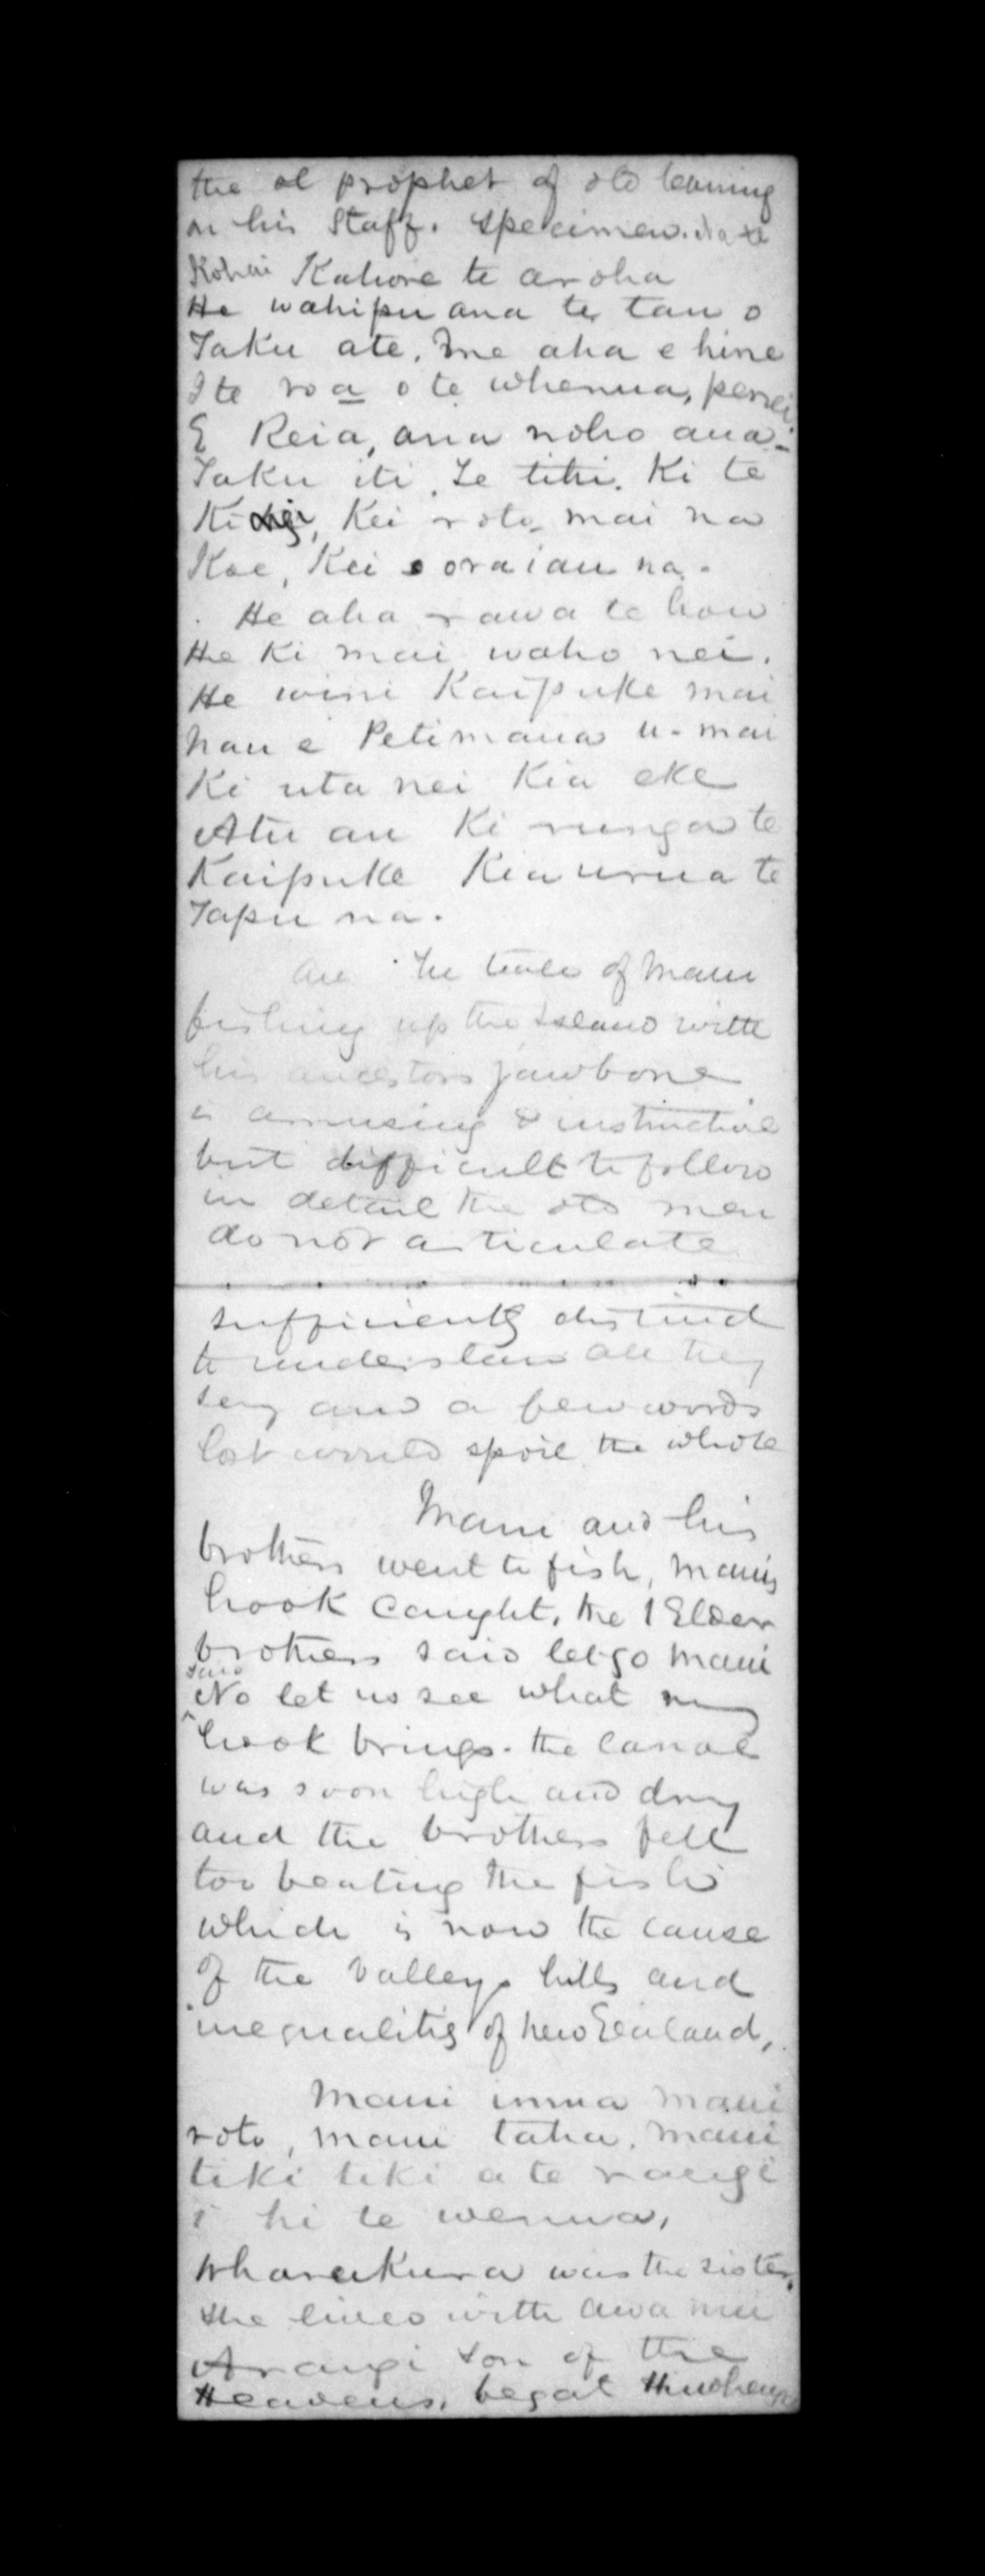 the ol prophet of old leaning
on his Staff. Specimen. na te
Kohai Kahore te aroha
He wahipu ana te tau o
Taku ate. Me aha e hine
I te roa o te whenua, penei
E Reia, ana noho ana -
Taku iti. Te tihi. Ki te
Ki, Kei roto mai na
Koe, Kei o oraiau na.
He aha rawa te hau
He Ki mai waho nei.
He wini Kaipuke mai
hau e Petimana u - mai
Ki uta nei Kia eke
Atu au Ki runga te
Kaipuke Kia urua te
Tapu na.
The tale of Maui
fishing up the Island with
his ancestors jawbone
is amusing & instructive
but difficult to follow
in detail the old men
do not articulate
sufficiently distinct
to understand all they
say and a few words
lost would spoil the whole
Maui and his
brothers went to fish, Mauis
hook caught, the 1 Elder
brothers said let go Maui
said
No let us see what my
hook brings. the canoe
was soon high and dry
and the brothers fell
too beating the fish
which is now the cause
of the valleys hills and
inequalities of New Zealand,
Maui mua Maui
roto, Maui taha, Maui
tiki tiki a te rangi
i hi te wenua,
Wharekura was the sister
she lived with Awa nui
Arangi son of the
Heavens. begat